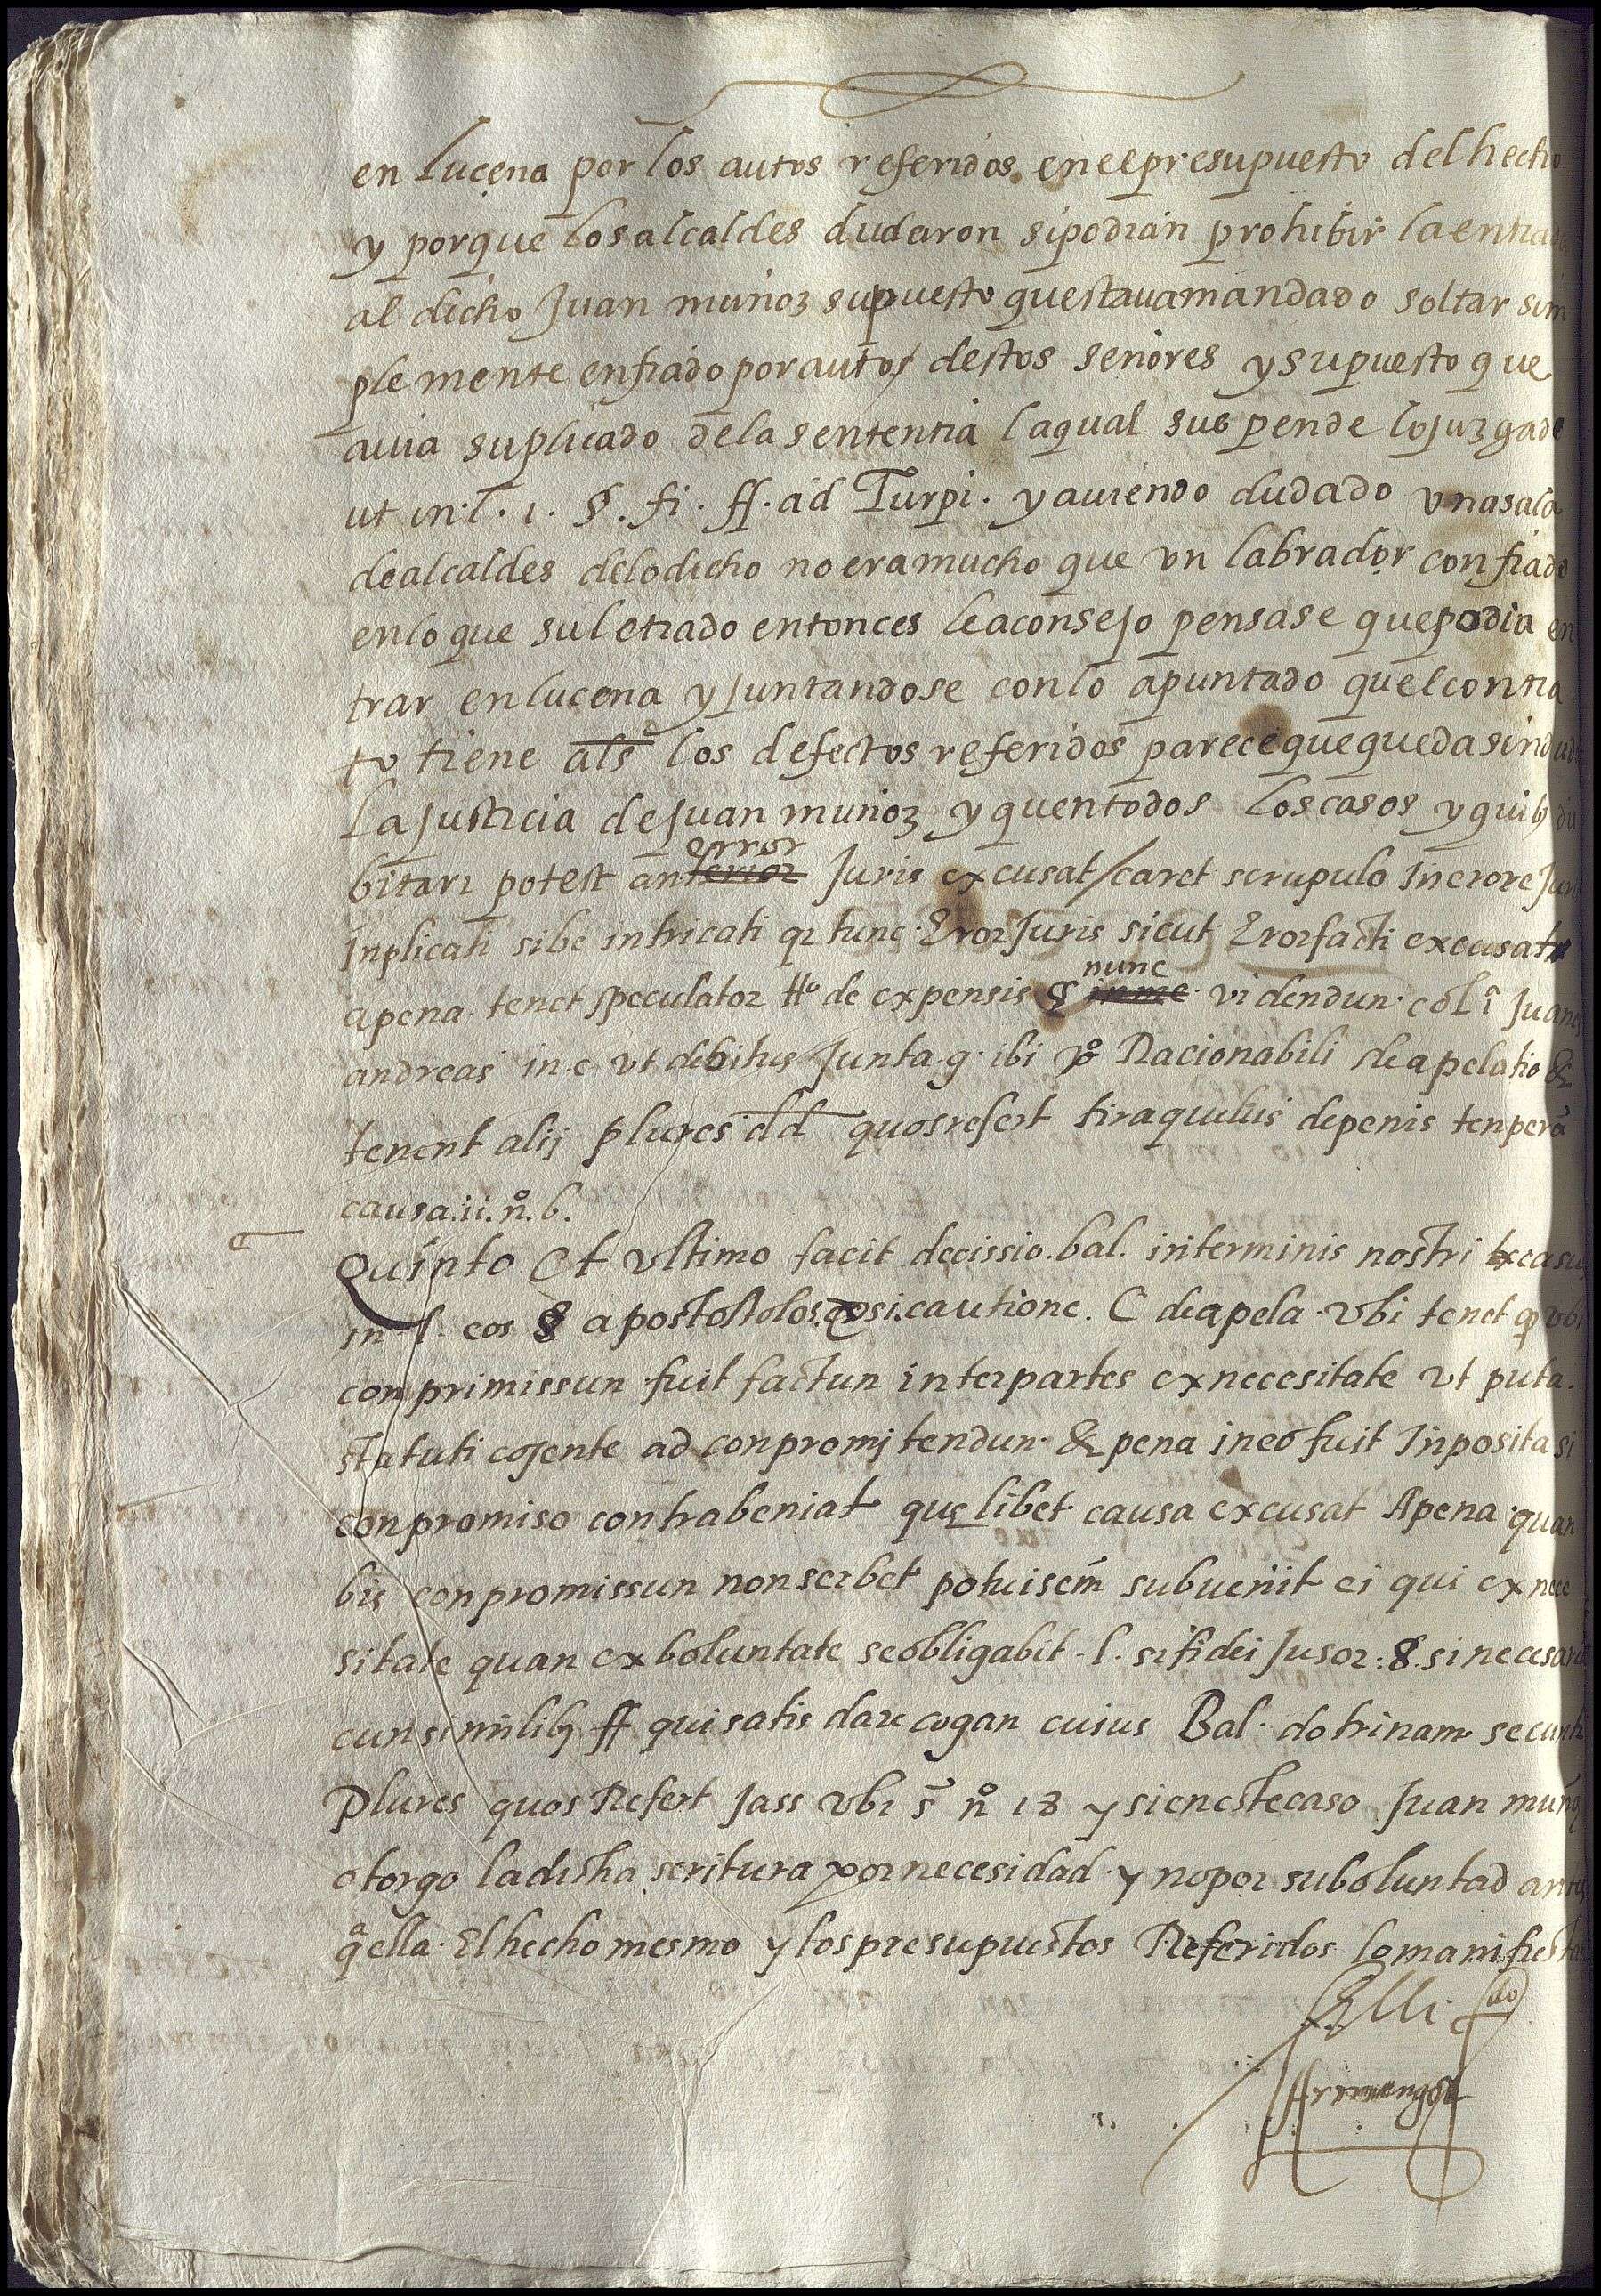 en lucena por los autos referidos. en eepresupuesto del hecho
y porque los alcaldes dudaron si podrian prohibir la entrad
al dicho Juan muñoz supuesto questaua mandado soltar sim
plemente en fiado por autos destos señores y supuesto que
auia suplicado de la sententia la qual suspende lo juzgado
ut in. l. 1. §. fi. ff. ad Turpi. y auiendo dudado vna sala
de alcaldes de lo dicho no era mucho que vn labrador confiado
en lo que su letrado entonces le aconsejo pensase que podia en
trar en lucena y juntandose con lo apuntado quel contra
to tiene als los defectos referidos parece que queda sin dud
La justicia de juan muñoz y quen todos los casos y quibꝫ du
bitari potest an error Juris excusat / caret scrupulo In erore Jur
Inplicati sibe intricati qr tunc. Eror Juris sicut Eror facti excusat
apena. tenet speculator tto de expensis § nunc videndun. col i Juanes
andreas in c ut debitus Junta g. ibi vo Racionabili de apelatio &
tenent alij plures dd quos refert tiraquelus de penis tenpera
causa. ii. no. 6.
Quinto Et vltimo facit decissio. bal. in terminis nostri casus
in l. eos § apostoStolos. si. cautione. C de apela. vbi tenet q vbi
conprimissun fuit factun inter partes ex necesitate vt puta.
statuti cojente ad conpromitendun. & pena in eo fuit Inposita si
conpromiso contrabeniat quelibet causa excusat Apena. quan
bis conpromissun non serbet potuisem subuenit ei qui ex nece
sitate quan ex boluntate se obligabit. l. si fidei Jusor: §. si necesaria
cun similibꝫ ff qui satis dare cogan cuius Bal. dotrinam secunti
Plures quos Refert Jass vbi s no 18 y si en este caso Juan muño
otorgo la dicha scritura por necesidad. y no por su boluntad antes
qella. El hecho mesmo y los presupuestos Referidos lo manifiesta